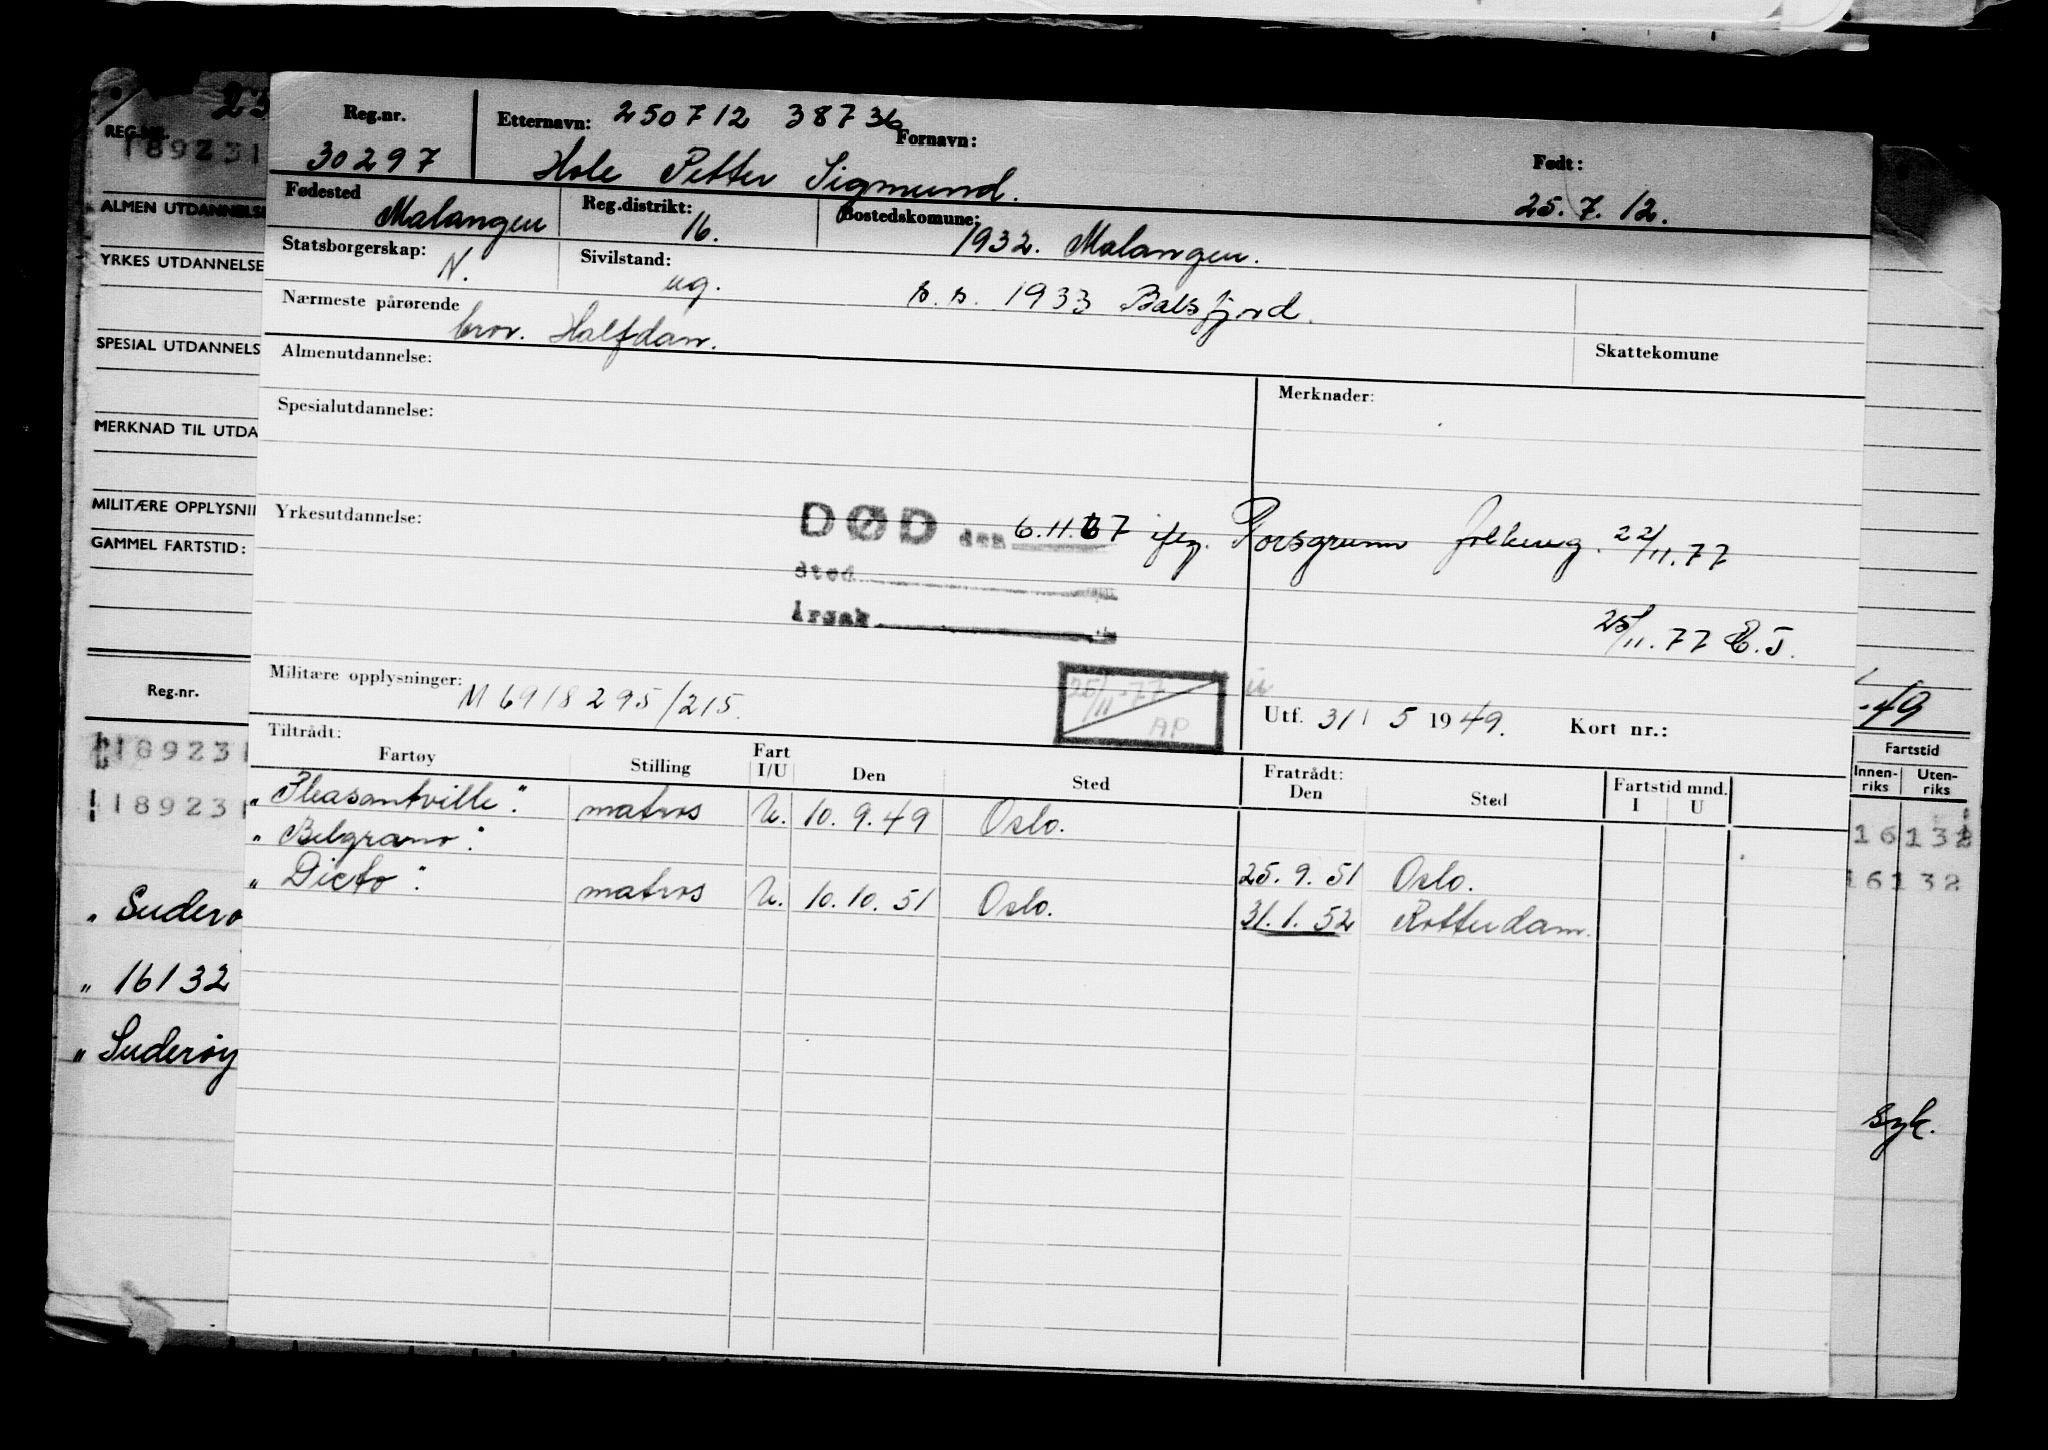 Reg.nr. Etternavn: 250712 38736 Fornavn: Født:
30297 Hole Petter Sigmund. 25.7.12.
Fødested Malangen Reg.distrikt: 16. Bostedskomune: 1932. Malangen.
Statsborgerskap: N. Sivilstand: ug. s.s. 1933 Balsfjord.
Nærmeste pårørende bror. Halfdan. Skattekomune
Almenutdannelse: Merknader:
Spesialutdannelse:
Yrkesutdannelse: DØD den 6.11.67 iflg. Porsgrunn folkereg. 22/11.77
Sted
Årsak 25/11.77 E.T.
Militære opplysninger: M 6918295/215. 25/11-77 AP Utf. 31/5 1949. Kort nr.:
Tiltrådt: Fratrådt:
Fartøy Stilling Fart I/U Den Sted Den Sted Fartstid mnd. I U
"Pleasantville". matros U. 10.9.49 Oslo.
"Belgrano". 25.9.51 Oslo.
"Dicto". matros U. 10.10.51 Oslo. 31.1.52 Rotterdam.
23
REG.NR.
189231
ALMEN UTDANNELSE
YRKES UTDANNELSE
SPESIAL UTDANNELS
MERKNAD TIL UTDA
MILITÆRE OPPLYSNI
GAMMEL FARTSTID:
Reg.nr.
189231
189231
" Suderø
" 16132
" Suderøy
-49
Fartstid
Innenriks Utenriks
16132
16132
syk.